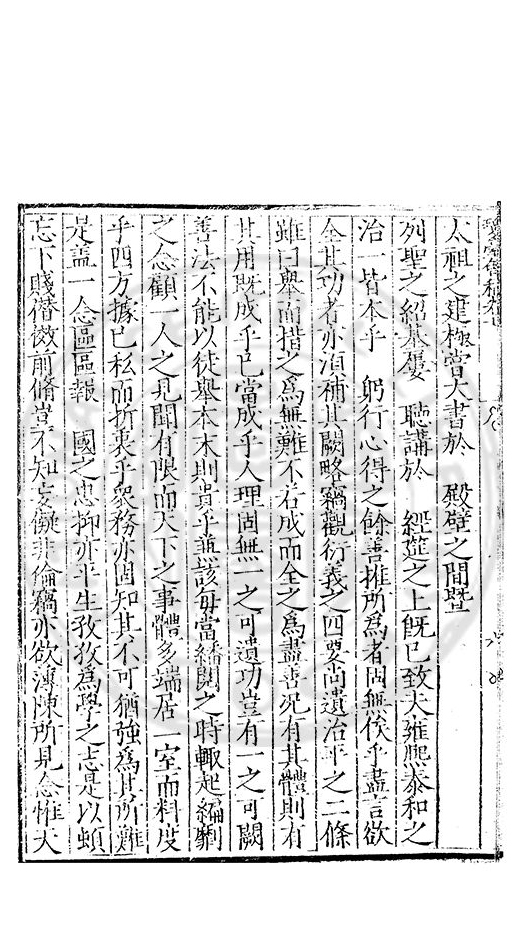 太祖之建極嘗大書於　殿壁之間曁
列聖之紹基屢　聽講於　經筵之上旣已致大雍熙泰和之
治一皆本乎　躬行心得之餘善推所爲者固無俟乎盡言欲
全其功者亦須補其闕略竊觀衍義之四要尚遺治平之二條
雖曰舉而措之爲無難不若成而全之爲盡善况有其體則有
其用旣成乎已當成乎人理固無一之可遺功豈有一之可闕
善法不能以徒舉本末則貴乎兼該每當繙閱之時輙起編劘
之念顧一人之見聞有限而天下之事體多端居一室而料度
乎四方據已私而折衷乎衆務亦固知其不可猶強爲其所難
是盖一念區區報　國之忠抑亦平生孜孜爲學之志是以頓
忘下賤僭傚前脩豈不知妄擬非倫竊亦欲薄陳所見念惟大